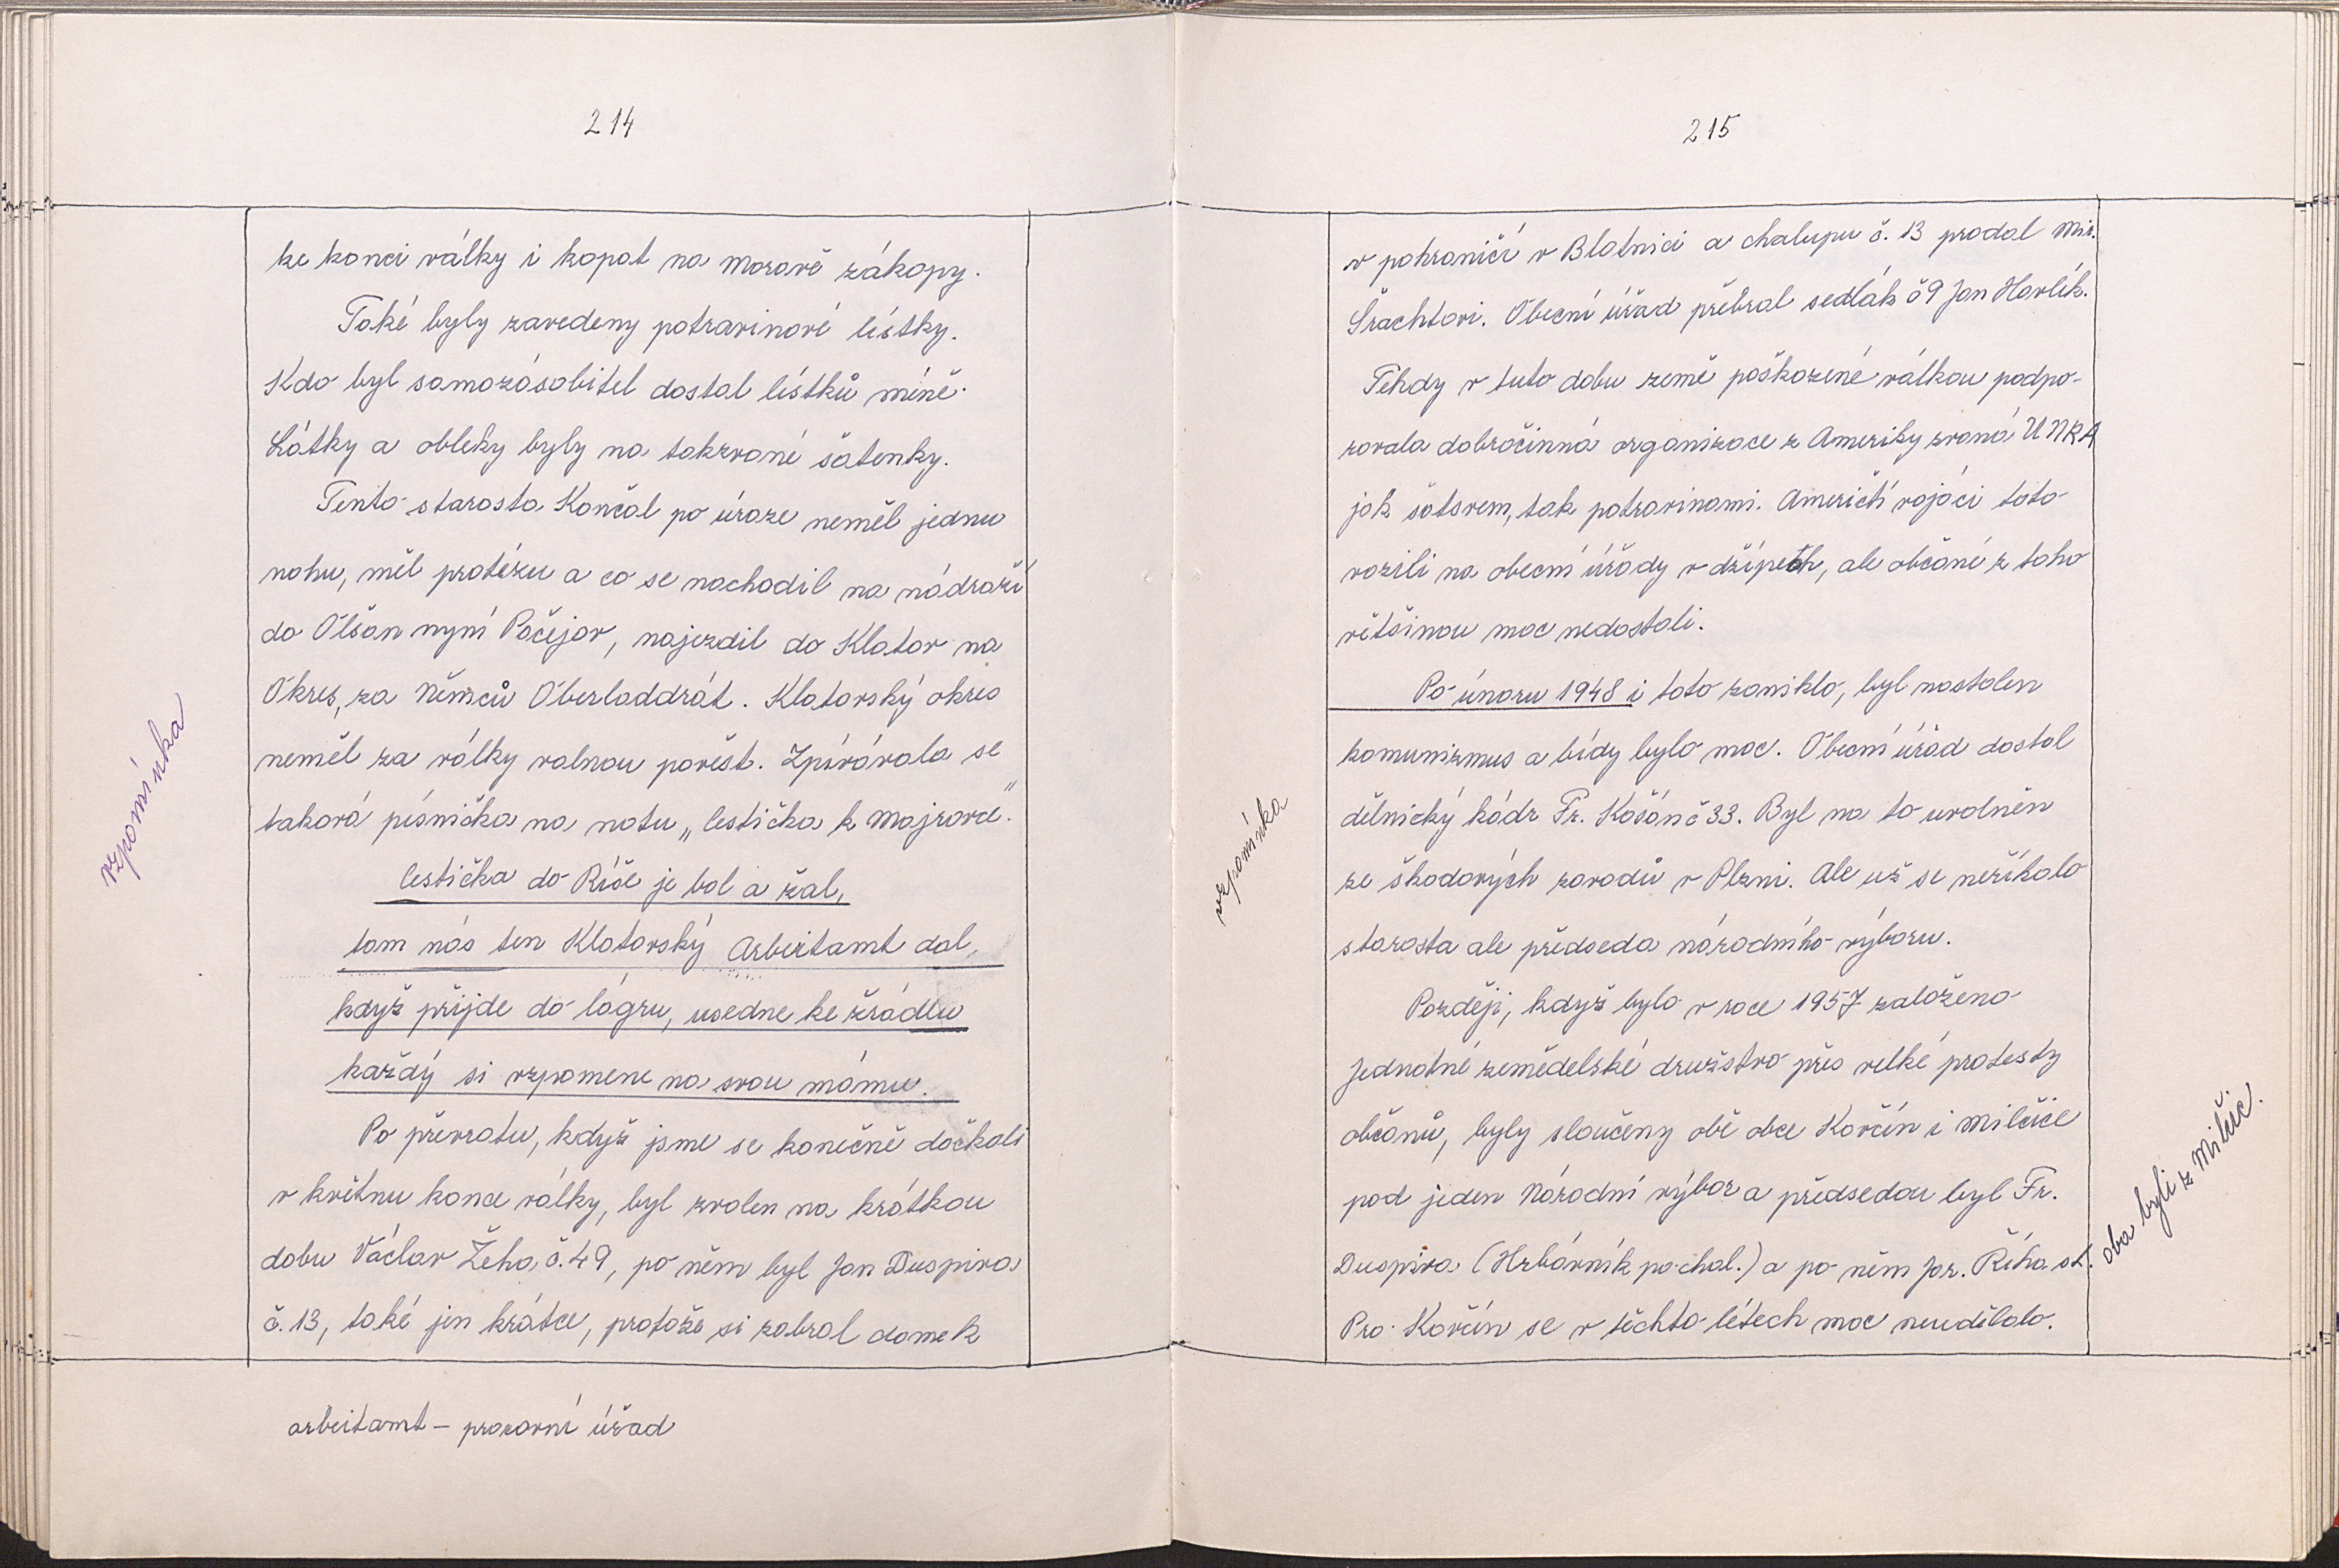 214
vzpomínka
ke konci války i kopat na Moravě zákopy.
Také byly zavedeny potravinové lístky.
Kdo byl samozásobitel dostal lístků méně.
Látky a obleky byly na takzvané šatenky.
Tento starosta Končal po úraze neměl jednu
nohu, měl protézu a co se nachodil na nádraží
do Olšan nyní Pačejov, najezdil do Klatov na
Okres, za Němců Oberladdrát. Klatovský okres
neměl za války valnou pověst. Zpívávala se
taková písnička na notu „Cestička k Majrovce."
Cestička do Říše je bol a žal,
tam nás ten Klatovský Arbeitamt dal,
když přijde do lágru, usedne ke žrádlu
každý si vzpomene na svou mámu.
Po převratu, když jsme se konečně dočkali
v květnu konce války, byl zvolen na krátkou
dobu Václav Žeha č. 49, po něm byl Jan Duspiva
č. 13, také jen krátce, protože si zabral domek
arbeitamt – pracovní úřad
215
v pohraničí v Blatnici a chalupu č. 13 prodal Mir.
Šrachtovi. Obecní úřad přebral sedlák č 9 Jan Havlík.
Tehdy v tuto dobu země poškozené válkou podpo-
rovala dobročinná organizace z Ameriky zvaná UNRA
jak šatsvem, tak potravinami. Američtí vojáci toto
vozili na obecní úřady v džípech, ale občané z toho
většinou moc nedostali.
Po únoru 1948 i toto zaniklo, byl nastolen
komunizmus a bídy bylo moc. Obecní úřad dostal
dělnický kádr Fr. Košán č 33. Byl na to uvolněn
ze škodových závodů v Plzni. Ale už se neříkalo
starosta ale předseda národního výboru.
Později, když bylo v roce 1957 založeno
Jednotné zemědelské družstvo přes velké protesty
občanů, byly sloučeny obě obce Kovčín i Milčice
pod jeden Národní výbor a předsedou byl Fr.
Duspiva (Hrbávník po chal.) a po něm Jar. Říha st.
Pro Kovčín se v těchto létech moc neudělalo.
vzpomínka
oba byli z Milčic.